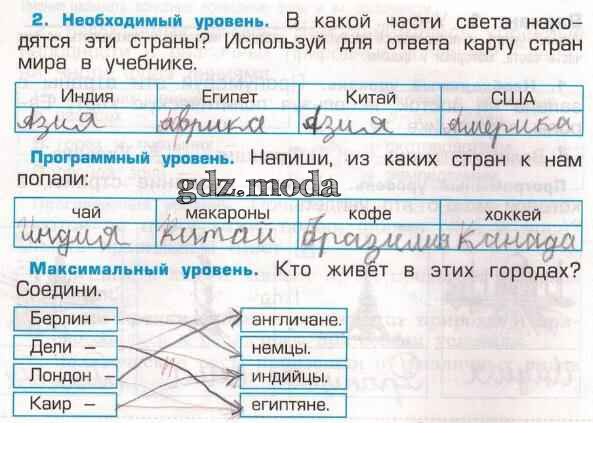 2. Необходимый уровень. В какой части света нахо-
дятся эти страны? Используй для ответа карту стран
мира в учебнике.
Индия Египет Китай США
Азия африка Азия Америка
Программный уровень. Напиши, из каких стран к нам
попали:
gdz.moda
чай макароны кофе хоккей
Индия Китай Бразилия Канада
Максимальный уровень. Кто живёт в этих городах?
Соедини.
Берлин – англичане.
Дели – немцы.
Лондон – индийцы.
Каир – египтяне.